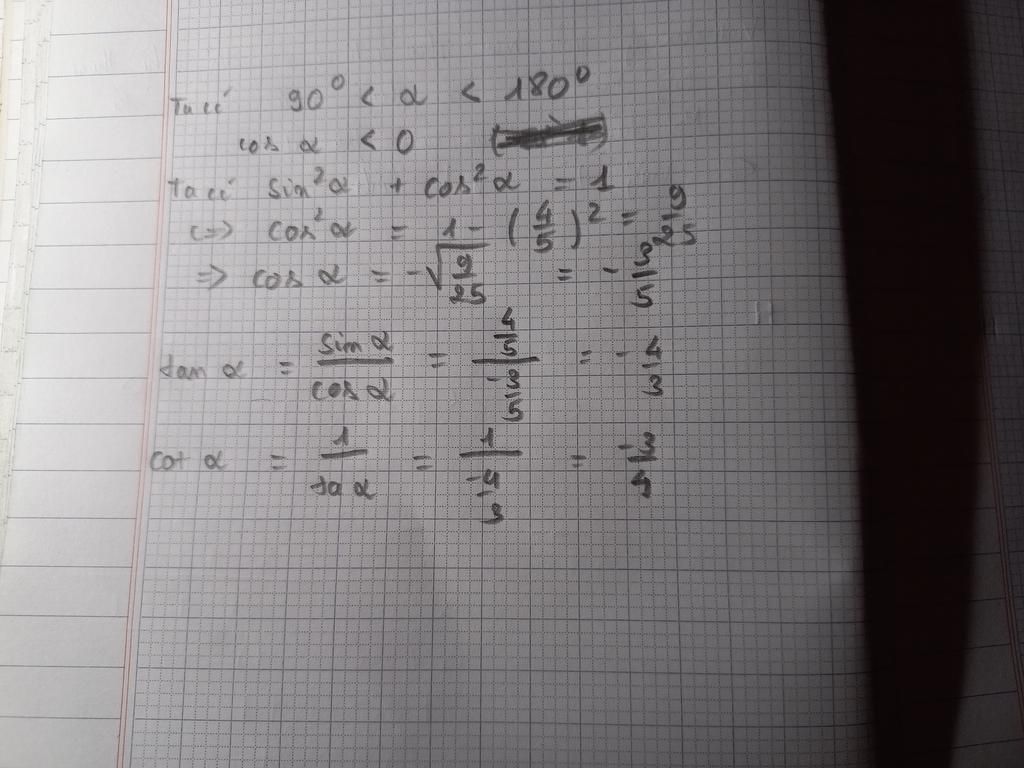 Ta có 90° < α < 180°
cos α < 0
Ta có sin²α + cos²α = 1
<=> cos²α = 1 - (4/5)² = 9/25
=> cos α = -√(9/25) = -3/5
tan α = sin α/cos α = (4/5)/(-3/5) = -4/3
cot α = 1/ta α = 1/(-4/3) = -3/4